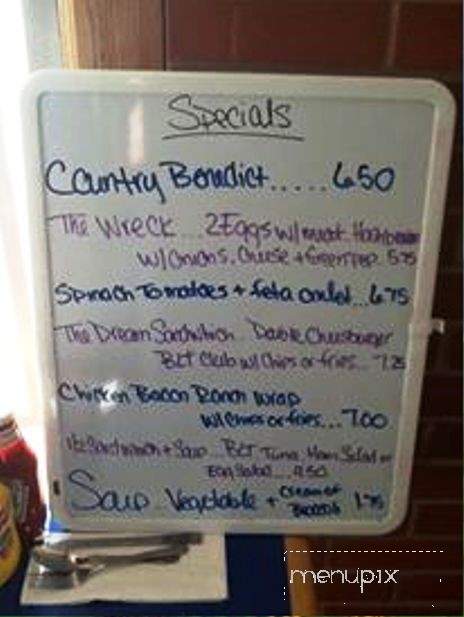 Specials
Country Benedict..... 6.50
The Wreck... 2 Eggs w/meat. Hashbrown
w/onions, cheese + Green pep. 5.75
Spinach Tomatoes + feta omlet... 6.75
The Dream Sandwhich... Double Cheesburger
BLT Club w/Chips or fries... 7.25
Chicken Bacon Ranch wrap
w/Chips or fries... 7.00
1/2 Sandwhich + Soup... BLT Tuna, Ham Salad or
Egg Salad... 4.50
Soup... Vegetable + Cream of
Broccoli 1.75
menupix